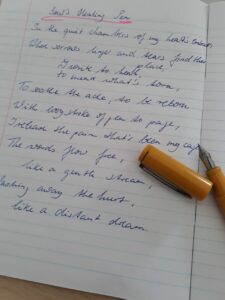 Soul's Healing Pen
In the quiet chambers of my heart's
Where sorrows linger and tears find their
place,
I write to heal,
to mend what's torn,
To soothe the ache, to be reborn
With every stroke of pen to page,
I release the pain that's been my cage
The words flow free,
like a gentle stream,
Washing away the hurt,
like a distant dream.